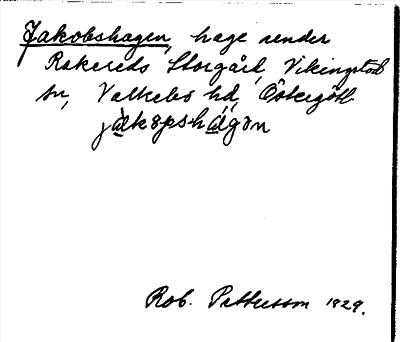 Jakobshagen, hage under
Rakereds Storgård, Vikingstad
sn, Valkebo hd, Östergötl.
jàkəpshàgən
Rob. Pettersson 1929.